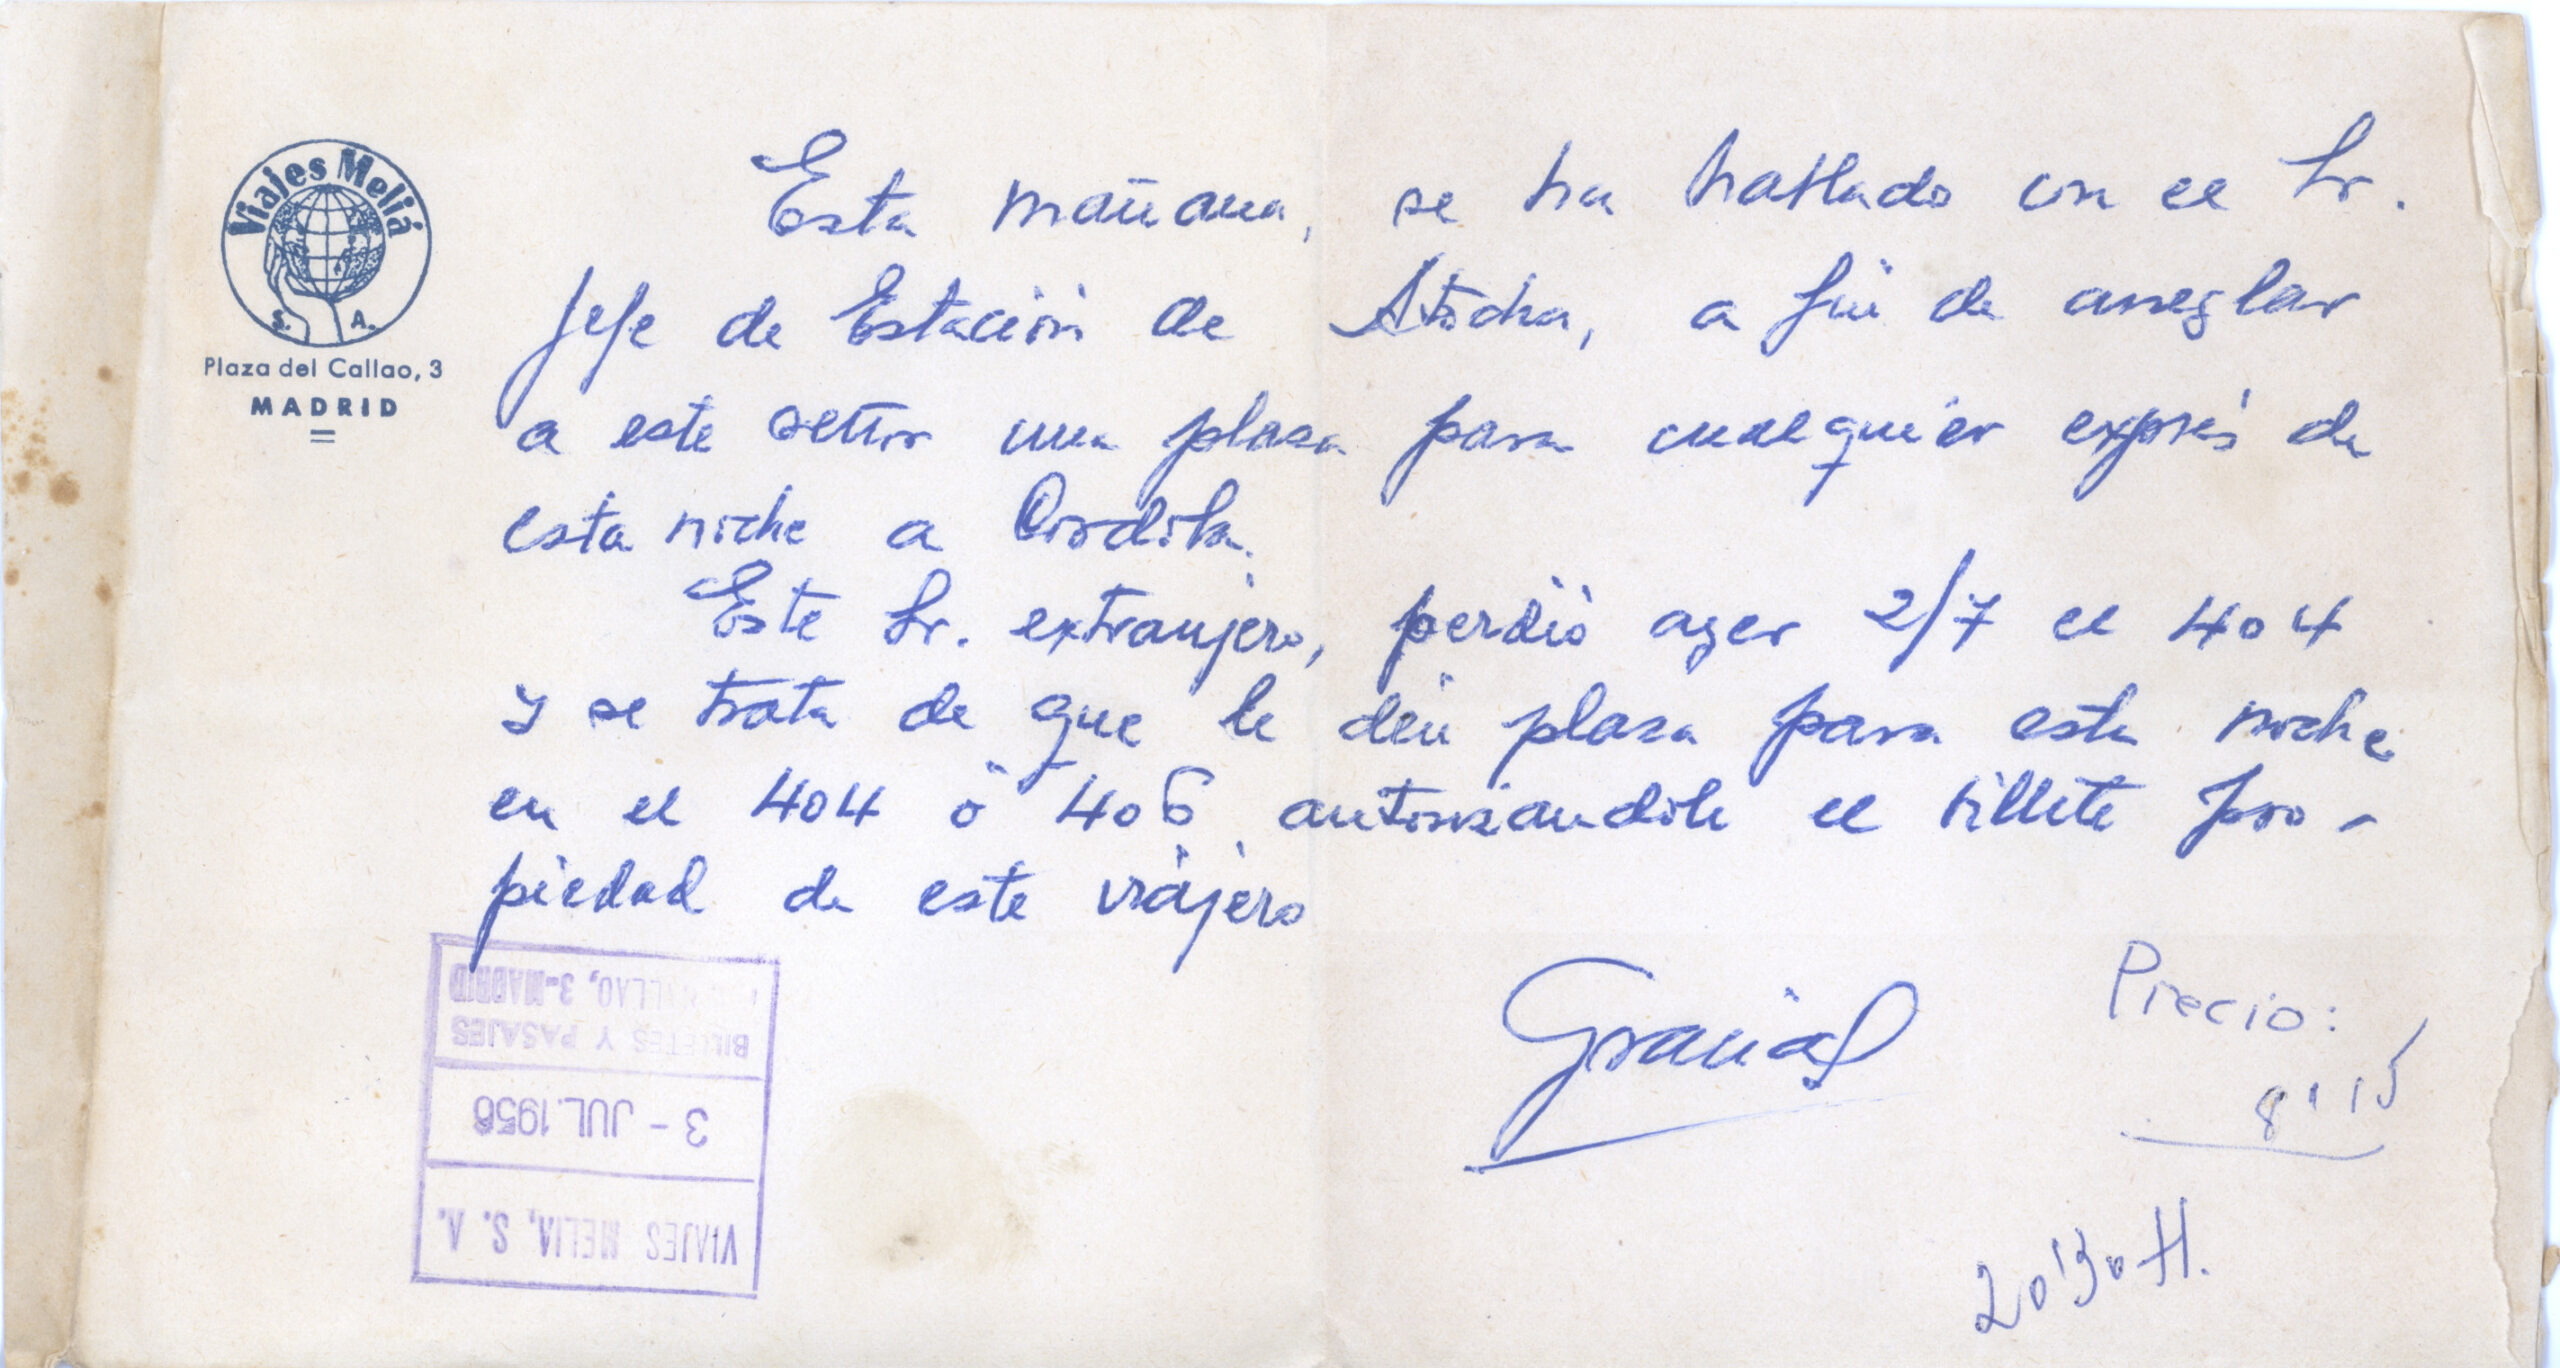 Viajes Meliá
S. A.
Plaza del Callao, 3
MADRID
Esta mañana, se ha hablado con el Sr.
Jefe de Estación de Atocha, a fin de arreglar
a este señor una plaza para cualquier exprés de
esta noche a Córdoba.
Este Sr. extranjero, perdió ayer 2/7 el 404
y se trata de que le den plaza para esta noche
en el 404 ó 406 autorizandole el billete pro-
piedad de este viajero
Gracias
Precio:
8'15
20'30 H.
VIAJES MELIA, S. A.
3 - JUL. 1956
BILLETES Y PASAJES
CALLAO, 3-MADRID